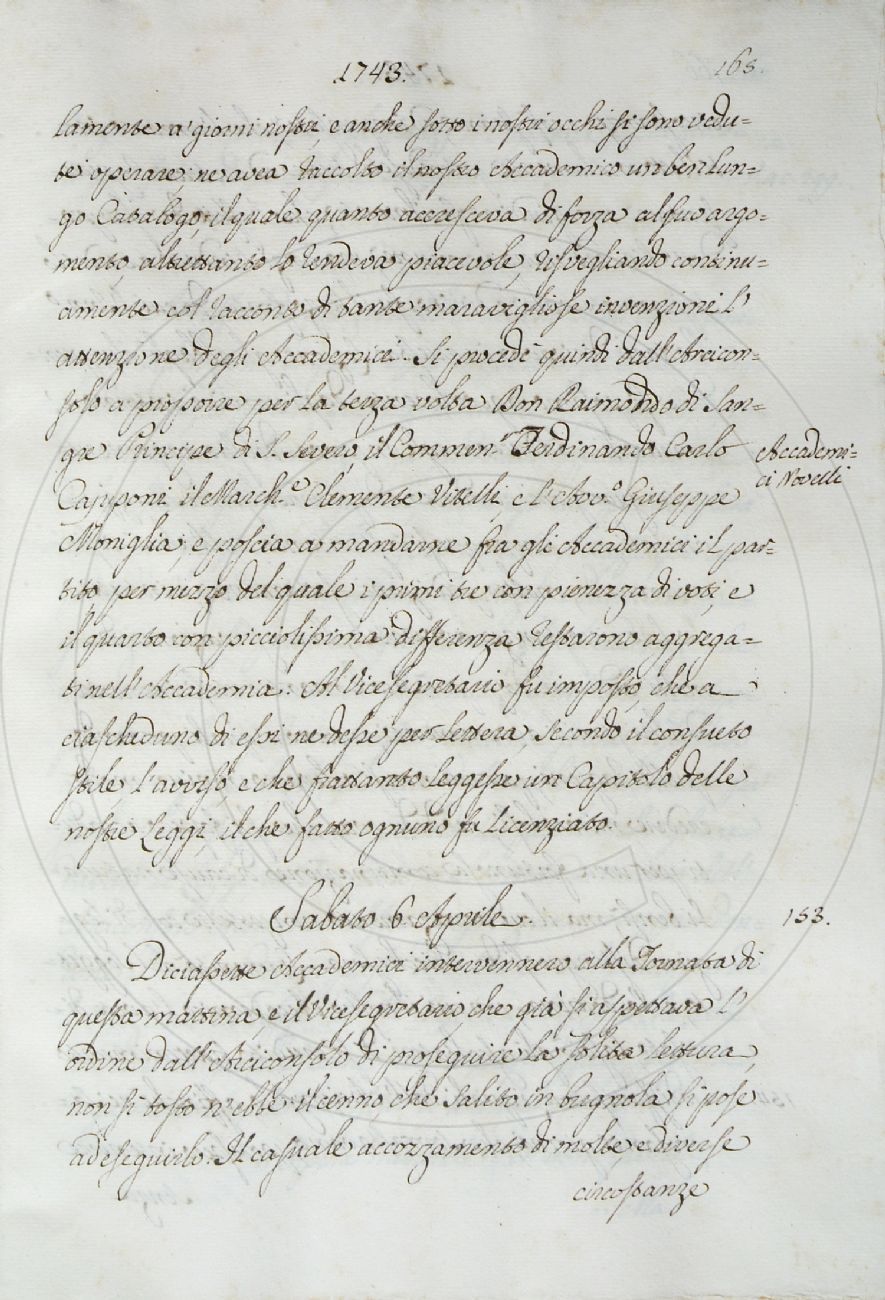 1743.
165.
lamente a' giorni nostri, e anche sotto i nostri occhi si sono vedu=
te operare; ne avea raccolto il nostro Accademico un ben lun=
go Catalogo, il quale quanto accresceva di forza al suo argo=
mento, altrettanto lo rendeva piacevole, risvegliando continu=
amente col racconto di tante maravigliose invenzioni l'
attenzione degli Accademici. Si procedè quindi dall'Arcicon=
solo a proporre per la terza volta Don Raimondo di San=
gre Principe di S. Severo, il Commen.r Ferdinando Carlo
Accademi=
ci Novelli
Capponi il March.e Clemente Vitelli e l'Avv.o Giuseppe
Moniglia; e poscia a mandarne fra gli Accademici il par=
tito per mezzo del quale i primi tre con pienezza di voti, e
il quarto con picciolissima differenza restarono aggrega=
ti nell'Accademia. Al Vicesegretario fu imposto, che a
ciascheduno di essi ne desse per lettera, secondo il consueto
stile, l'avviso, e che frattanto leggesse un Capitolo delle
nostre Leggi, il che fatto ognuno fu licenziato.
Sabato 6 Aprile.
153.
Diciassette Accademici intervennero alla Tornata di
questa mattina, e il Vicesegretario, che già si aspettava l'
ordine dall'Arciconsolo di proseguire la solita lettura,
non sì tosto n'ebbe il cenno che salito in bugnola si pose
ad eseguirlo. Il casuale accozzamento di molte, e diverse
circostanze